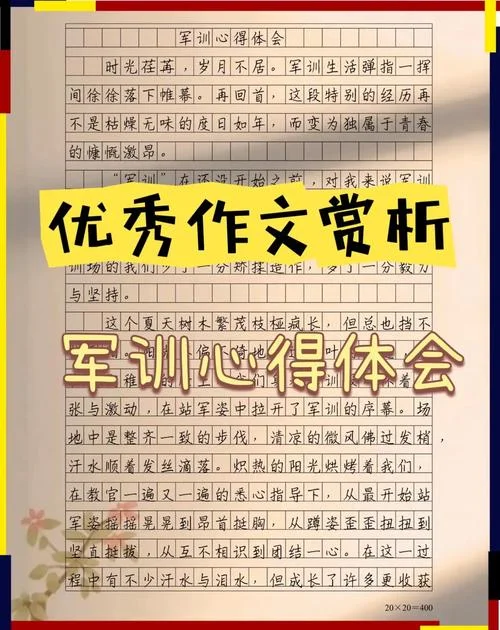 军训心得体会
时光荏苒，岁月不居。军训生活弹指一挥
间徐徐落下帷幕。再回首，这段特别的经历再
不是枯燥无味的度日如年，而变为独属于青春
的慷慨激昂。
“军训”在还没开始之前，对我来说军训
优秀作文赏析
训场的我们少了一分矫揉造作，多了一分毅力
与坚持。
这个夏天树木繁茂枝桠疯长，但总也挡不
军训心得体会
张与激动，在站军姿中拉开了军训的序幕。场
地中是整齐一致的步伐，清凉的微风佛过发梢，
汗水顺着发丝滴落。炽热的阳光烘烤着我们，
在教官一遍又一遍的悉心指导下，从最开始站
军姿摇摇晃晃到昂首挺胸，从蹲姿歪歪扭扭到
竖直挺拔，从互不相识到团结一心。在这一过
程中有不少汗水与泪水，但成长了许多更收获
20×20=400